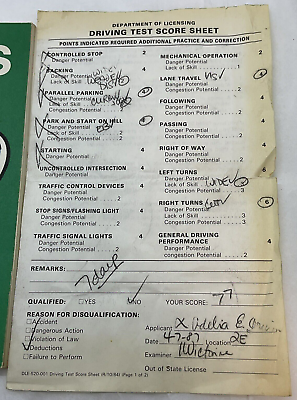 S
DEPARTMENT OF LICENSING
DRIVING TEST SCORE SHEET
POINTS INDICATED REQUIRED ADDITIONAL PRACTICE AND CORRECTION
CONTROLLED STOP 2
Danger Potential
BACKING
Danger Potential
PARALLEL PARKING 4
Danger Potential
Lack of Skill 2
PARK AND START ON HILL 4
Danger Potential
Lack of Skill 2
STARTING 4
Danger Potential
UNCONTROLLED INTERSECTION
Danger Potential 4
TRAFFIC CONTROL DEVICES 4
Danger Potential
Congestion Potential 2
STOP SIGNS/FLASHING LIGHT 4
Danger Potential
Congestion Potential 2
TRAFFIC SIGNAL LIGHTS 4
Danger Potential
Congestion Potential 2
MECHANICAL OPERATION 2
Danger Potential
Lack of Skill 2
LANE TRAVEL 4
Danger Potential
Lack of Skill
FOLLOWING 4
Danger Potential
Congestion Potential 2
PASSING 4
Danger Potential
Congestion Potential 2
RIGHT OF WAY 4
Danger Potential
Congestion Potential 2
LEFT TURNS WIDE
Danger Potential
Congestion Potential
Lack of Skill 3
RIGHT TURNS 6
Danger Potential
Congestion Potential 2
GENERAL DRIVING
PERFORMANCE 4
Danger Potential
Congestion Potential 2
REMARKS:
7 days
QUALIFIED: YES NO YOUR SCORE: 77
REASON FOR DISQUALIFICATION:
Accident
Dangerous Action
Violation of Law
Deductions
Failure to Perform
Applicant X Odelia E.
Date 4-7-87 Location 2E
Examiner
Out of State License
DLE-520-001 Driving Test Score Sheet (R/10/84) (Page 1 of 2)